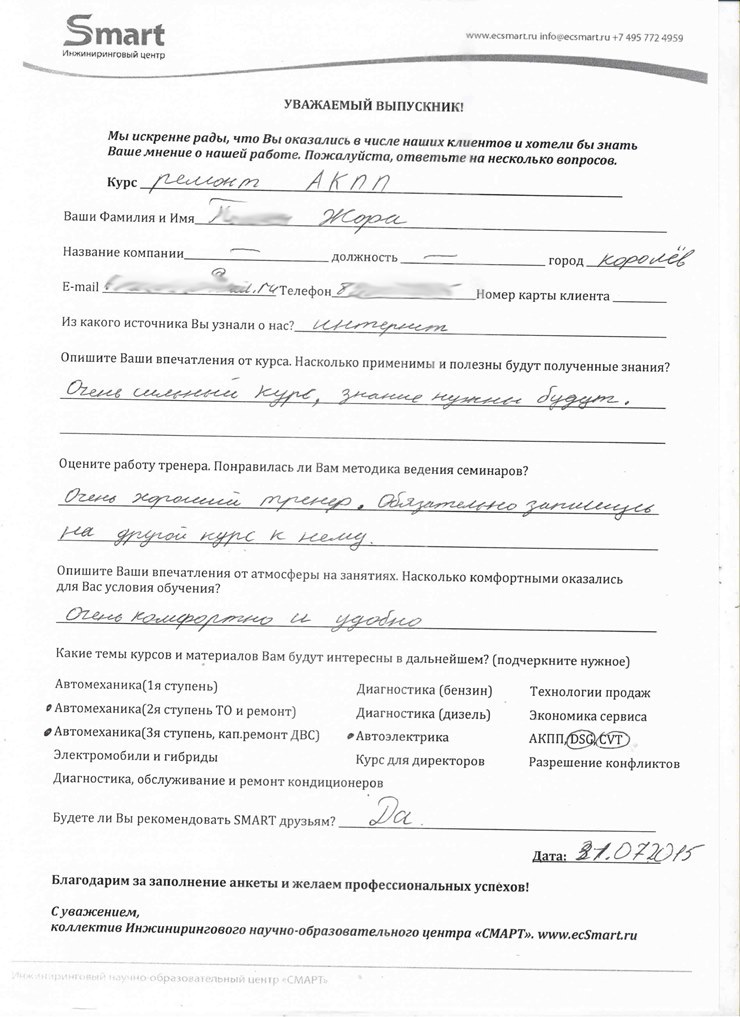 Smart
Инжиниринговый центр
www.ecsmart.ru info@ecsmart.ru +7 495 772 4959
УВАЖАЕМЫЙ ВЫПУСКНИК!
Мы искренне рады, что Вы оказались в числе наших клиентов и хотели бы знать
Ваше мнение о нашей работе. Пожалуйста, ответьте на несколько вопросов.
Курс ремонт АКПП
Ваши Фамилия и Имя Жора
Название компании — должность — город королёв
E-mail Телефон 8 Номер карты клиента
Из какого источника Вы узнали о нас? интернит
Опишите Ваши впечатления от курса. Насколько применимы и полезны будут полученные знания?
Очень сильный курс, знание нужны будут.
Оцените работу тренера. Понравилась ли Вам методика ведения семинаров?
Очень хороший тренер. Обязательно запишусь
на другой курс к нему.
Опишите Ваши впечатления от атмосферы на занятиях. Насколько комфортными оказались
для Вас условия обучения?
Очень комфортно и удобно
Какие темы курсов и материалов Вам будут интересны в дальнейшем? (подчеркните нужное)
Автомеханика(1я ступень) Диагностика (бензин) Технологии продаж
Автомеханика(2я ступень ТО и ремонт) Диагностика (дизель) Экономика сервиса
Автомеханика(3я ступень, кап.ремонт ДВС) Автоэлектрика АКПП, DSG, CVT
Электромобили и гибриды Курс для директоров Разрешение конфликтов
Диагностика, обслуживание и ремонт кондиционеров
Будете ли Вы рекомендовать SMART друзьям? Да.
Дата: 31.07.2015
Благодарим за заполнение анкеты и желаем профессиональных успехов!
С уважением,
коллектив Инжинирингового научно-образовательного центра «СМАРТ». www.ecSmart.ru
Инжиниринговый научно-образовательный центр «СМАРТ»